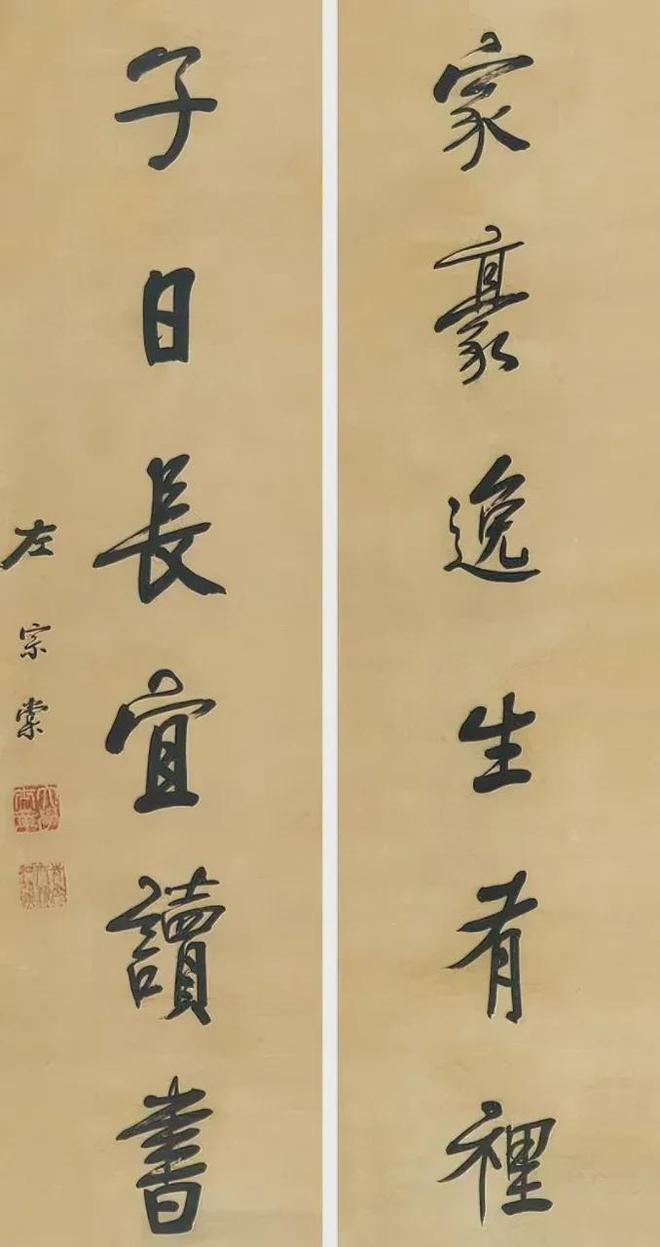 家豪逸生有裡
子日長宜讀書
左宗棠